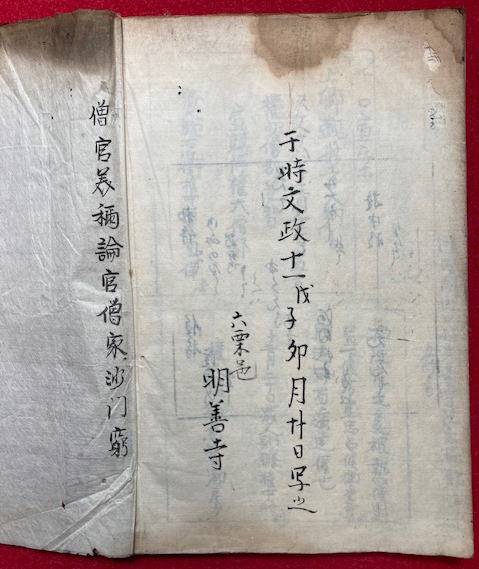 于時文政十一戊子卯月廿日写之
六栗邑
明善寺
僧官美稱論官僧家沙门窮